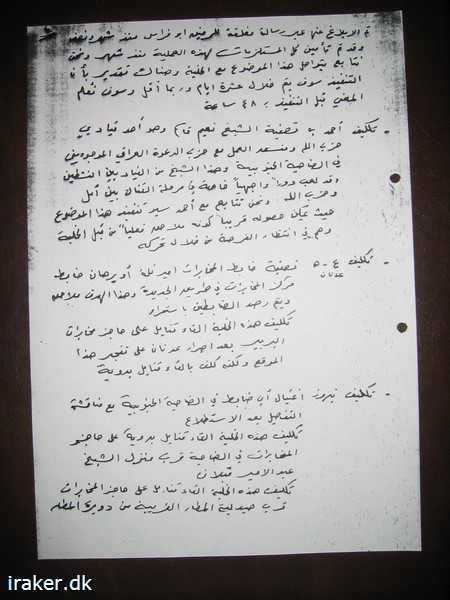 تم الابلاغ عنها عبر رسالة مغلقة للرفيق ابو فراس منذ شهر ونصف
وقد تم تأمين كل المستلزمات لهذه العملية منذ شهر ونحن
نتابع يتواصل هذا الموضوع مع الخلية وهناك تقدير بأن
التنفيذ سوف يتم خلال عشرة ايام وربما أقل وسوف نعلم
المعني قبل التنفيذ بـ ٤٨ ساعة
- تكليف أحمد بـ تصفية الشيخ نعيم قاسم وهو أحد قياديي
حزب الله ومنسق العمل مع حزب الدعوة العراقي الموجودين
في الضاحية الجنوبية وهذا الشيخ من القياديين النشطين
وقد لعب دوراً واجهياً خاصة في مرحلة القتال بين أمل
وحزب الله ونحن نتابع مع أحمد سير تنفيذ هذا الموضوع
حيث يمكن حصوله قريباً كونه ملاحق فعلياً من قبل الخلية
وهي في انتظار الفرصة من خلال تحركه
- تكليف ع - ه تصفية ضابط المخابرات
عدنان
مركز المخابرات في وهذا الهدف ملاحق
ويتم رصد الضابطين باستمرار
تكليف هذه الخلية القاء قنابل على حاجز مخابرات
البربير بعد اصرار عدنان على تفجير هذا
الموقع ولكنه كلف بالقاء قنابل يدوية
- تكليف نيروز اغتيال أي ضابط في الضاحية الجنوبية مع مناقشة
التفاصيل بعد الاستطلاع
تكليف هذه الخلية القاء قنابل يدوية على حاجز
المخابرات في الضاحية قرب منزل الشيخ
عبد الامير قبلان
تكليف هذه الخلية القاء قنابل على حاجز المخابرات
قرب صيدلية المطار القريبة من دوير المطار
iraker.dk